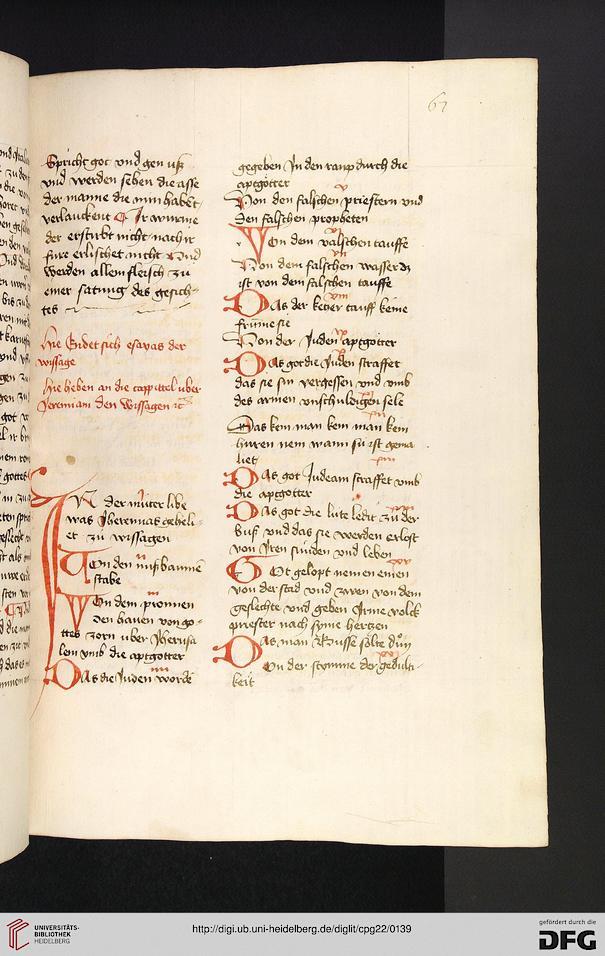 67
Spricht got vnd gen vß
vnd werden sehen die asse
der manne die min habẽt
verlauckent Ir wurme
der erstirbt nicht nach ir
fure erlischet nicht Vnd
werden allem fleisch zu
einer satung des gesich-
tes
Hie Endet sich esayas der
wissage
Hie heben an die cappittel uber
Jeremiam den wissagen
IN der muter libe
was Jheremias geheli-
et zu wissagen
Von den nußbaumẽ
stabe
Von dem pronnen
den hauen von go-
ttes zorn uber Jherusa
lem vmb die aptgotter
Das die Juden wordẽ
gegeben In den raup durch die
aptgotter
Von den falschen priestern vnd
den falschen propheten
Von dem valschen tauffe
Von dem falschen wasser dz
ist von dem falschen tauffe
Das der ketzer tauff keine
frume sie
Von der Juden aptgotter
Das got die Juden straffet
das sie sin vergessen vnd vmb
des armen vnschuldigen sele
Das kem man kem man kein
huren nem wann sú ist gema
het
Das got Judeam straffet vmb
die aptgotter
Das got die lute ledit zu der
buß vnd das sie werden erlost
von Iren sunden vnd leben
Got gelopt nemen einen
von der stad vnd zwen von dem
geslechte vnd geben Irme volck
priester nach syme hertzen
Das man Busse solte dun
Von der stymme der gedulti-
keit
UNIVERSITÄTS-
BIBLIOTHEK
HEIDELBERG
http://digi.ub.uni-heidelberg.de/diglit/cpg22/0139
gefördert durch die
DFG